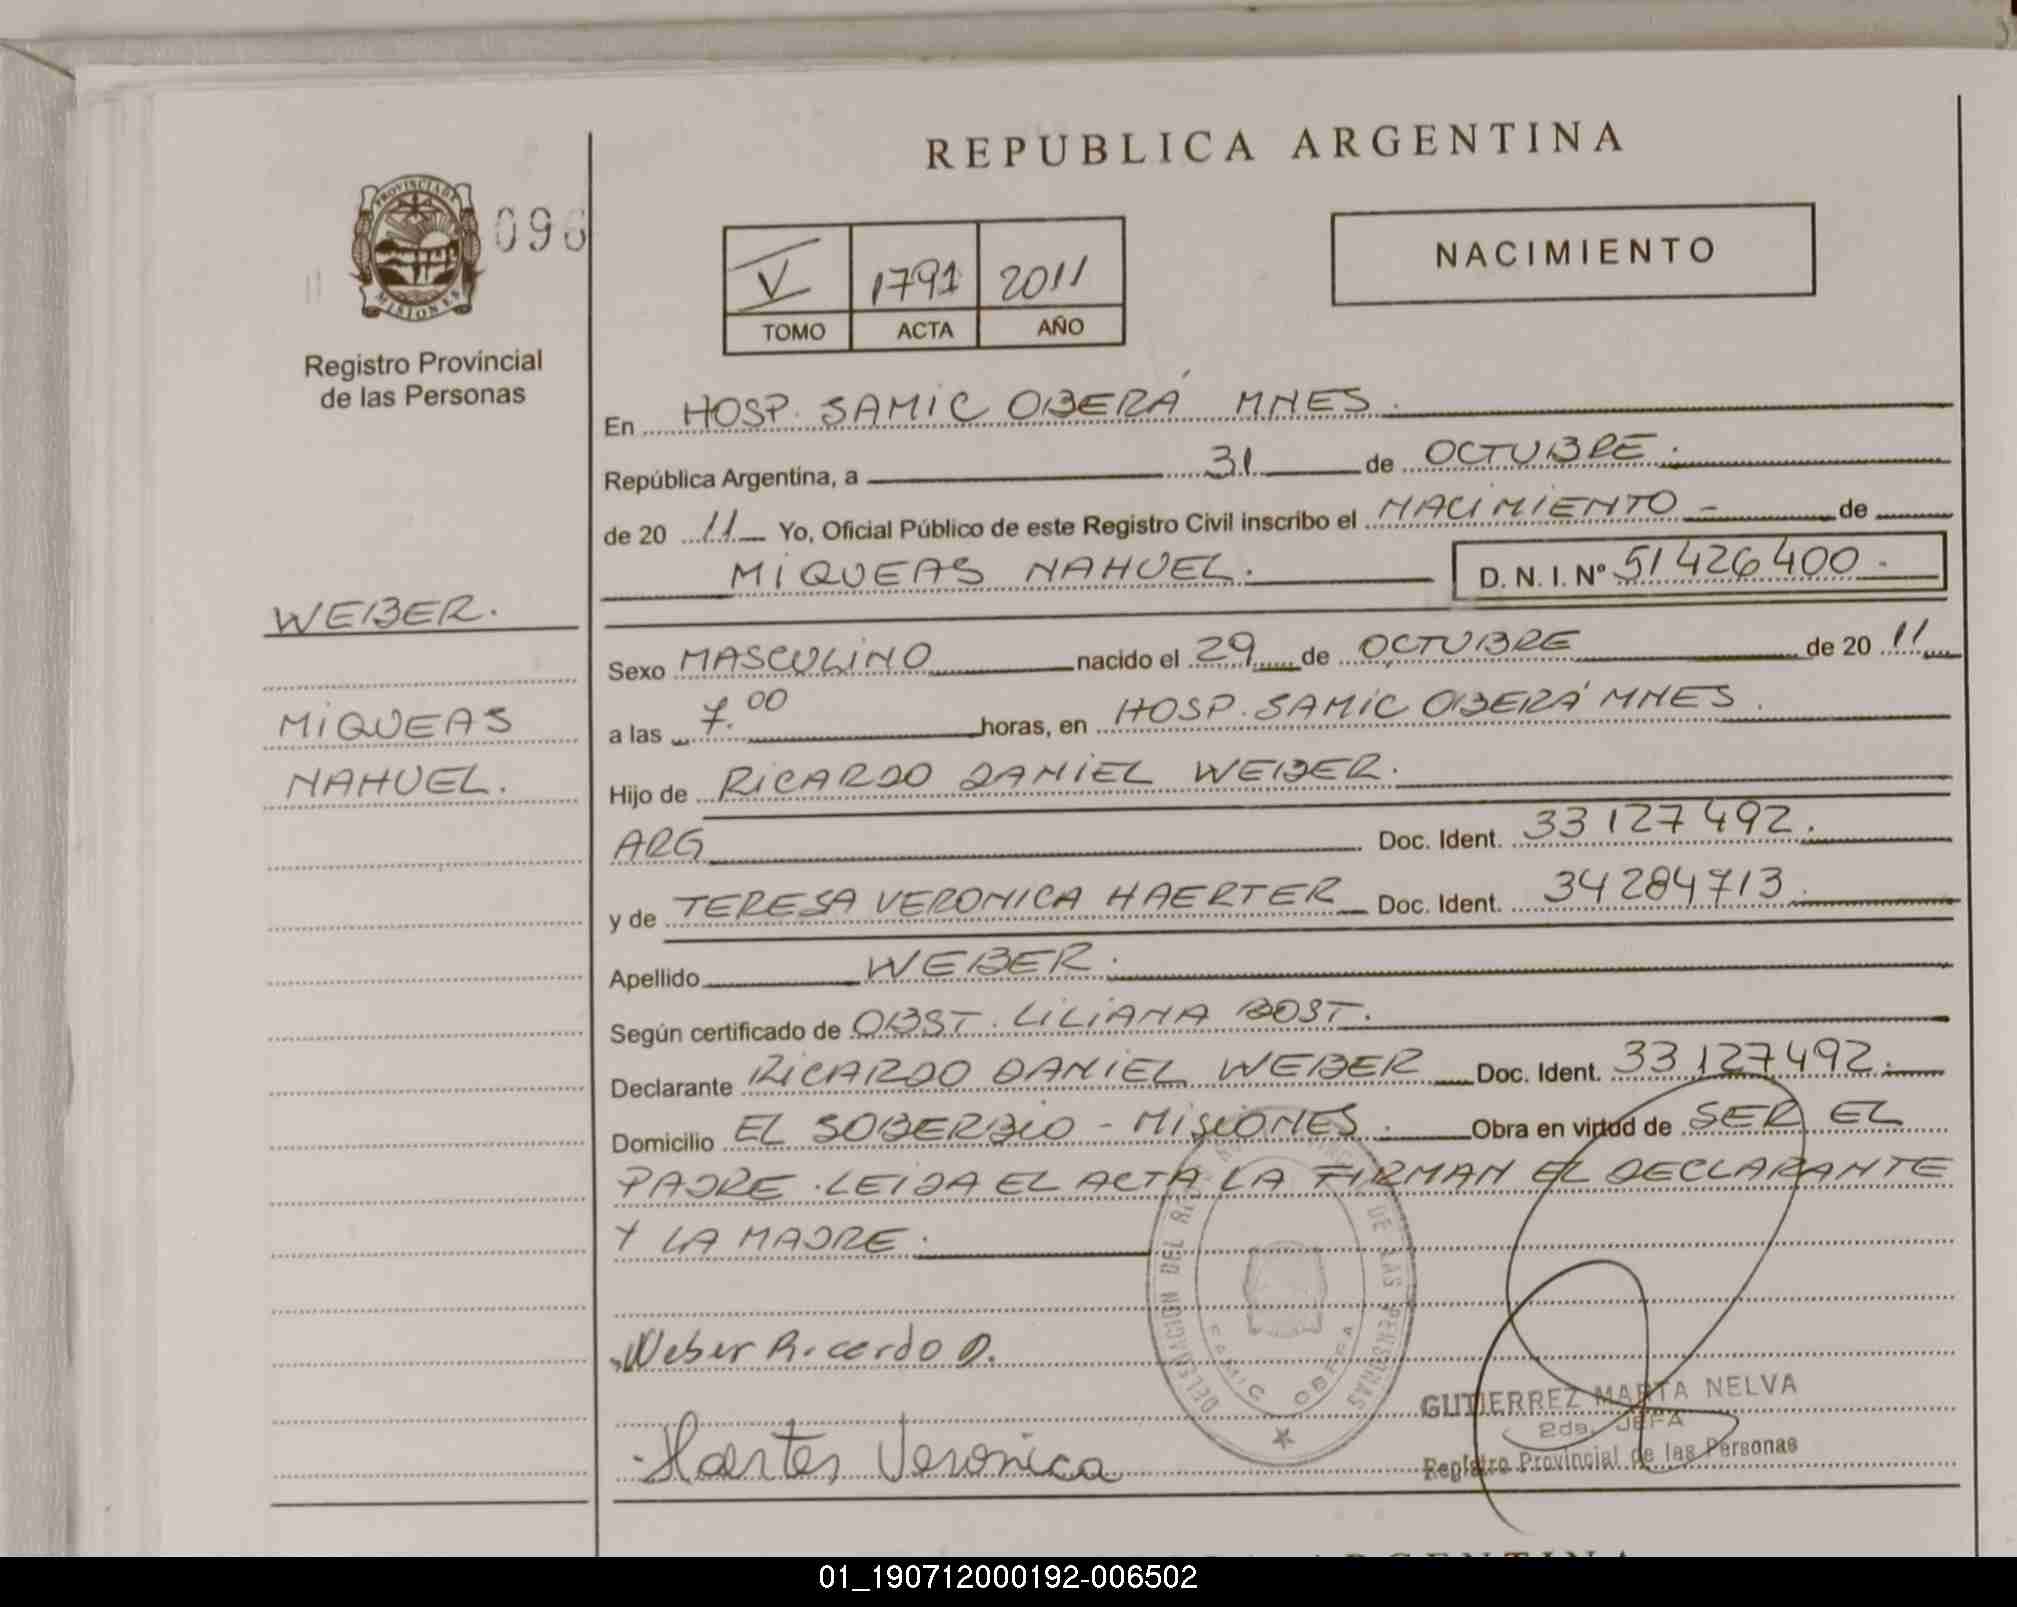 REPUBLICA ARGENTINA
PROVINCIA DE MISIONES
096
Registro Provincial
de las Personas
V 1791 2011
TOMO ACTA AÑO
NACIMIENTO
WEBER.
MIQUEAS
NAHUEL.
En HOSP. SAMIC OBERÁ MNES.
República Argentina, a 31 de OCTUBRE.
de 20 11 Yo, Oficial Público de este Registro Civil inscribo el NACIMIENTO - de
MIQUEAS NAHUEL. D. N. I. Nº 51426400.
Sexo MASCULINO nacido el 29 de OCTUBRE de 20 11
a las 7.00 horas, en HOSP. SAMIC OBERÁ MNES.
Hijo de RICARDO DANIEL WEBER.
ARG Doc. Ident. 33127492.
y de TERESA VERONICA HAERTER Doc. Ident. 34284713.
Apellido WEBER.
Según certificado de OBST. LILIANA BOST.
Declarante RICARDO DANIEL WEBER Doc. Ident. 33127492.
Domicilio EL SOBERBIO - MISIONES. Obra en virtud de SER EL
PADRE. LEIDA EL ACTA LA FIRMAN EL DECLARANTE
Y LA MADRE.
Weber Ricardo D.
Haerter Veronica
DE LAS PERSONAS
SAMIC OBERA
GUTIERREZ MARTA NELVA
2da. JEFA
Registro Provincial de las Personas
01_190712000192-006502